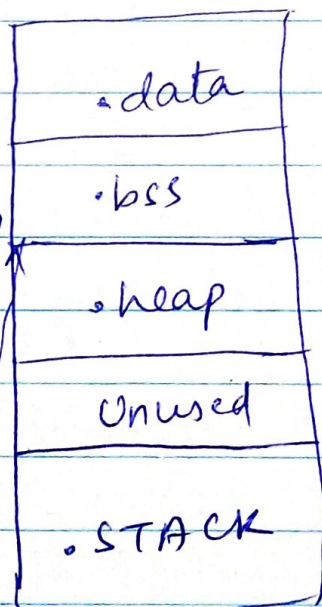 .data
.bss
.heap
Unused
.STACK